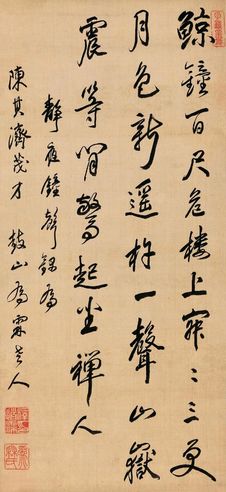 鯨鐘百尺危樓上寂〻三更
月色新遥杵一聲山嶽
震等閒驚起坐禪人
靜夜鐘聲録爲
陳其濟茂才 鼓山爲霖老人